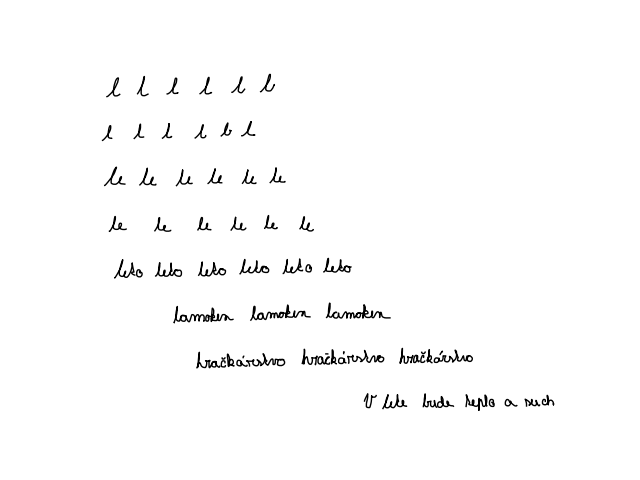 l l l l l l
l l l l l l
le le le le le le
le le le le le le
leto leto leto leto leto leto
lamoken lamoken lamoken
hračkárstvo hračkárstvo hračkárstvo
V lete bude teplo a such